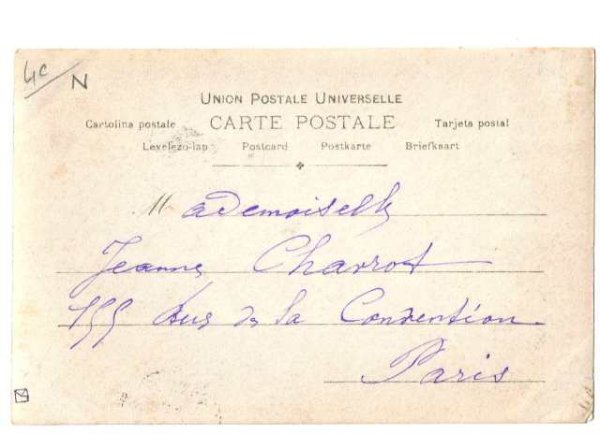 4c
N
UNION POSTALE UNIVERSELLE
Cartolina postale CARTE POSTALE Tarjeta postal
Levelezo-lap Postcard Postkarte Briefkaart
Mademoiselle
Jeanne Charrot
199 Rue de la Convention
Paris